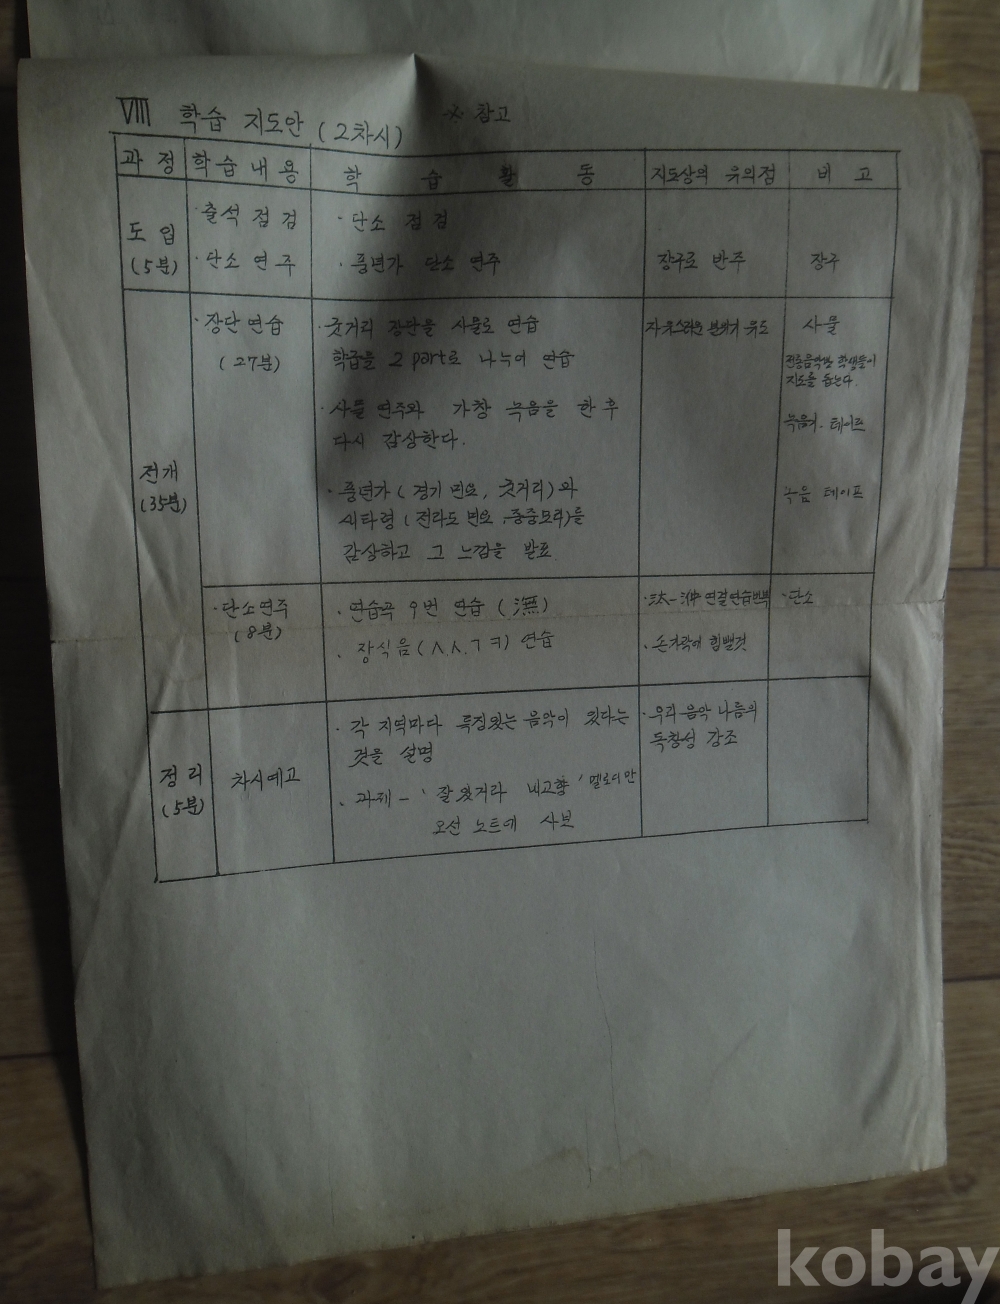 VIII 학습 지도안 (2차시) ※ 참고
과정 학습내용 학습활동 지도상의 유의점 비고
도입
(5분)
· 출석 점검
· 단소 연주
· 단소 점검
· 풍년가 단소 연주
장구로 반주
장구
전개
(35분)
· 장단연습
(27분)
· 굿거리 장단을 사물로 연습
학급을 2 part로 나누어 연습
· 사물 연주와 가창 녹음을 한 후
다시 감상한다.
· 풍년가 (경기 민요, 굿거리)과
새타령 (전라도 민요, 중중모리)을
감상하고 그 느낌을 발표
자유스러운 분위기 유도
사물
전통음악반 학생들이
지도를 돕는다.
녹음기. 테이프
녹음 테이프
· 단소연주
(8분)
· 연습곡 9번 연습 (潕)
· 장식음 (ㅅ,ㅅ,ㄱ ㅋ) 연습
· 汰-㳞 연결연습반복
· 손가락에 힘뺄것
· 단소
정리
(5분)
차시예고
· 각 지역마다 특징있는 음악이 있다는
것을 설명
· 과제 - '잘 있거라 내고향' 멜로디만
오선 노트에 사보
· 우리 음악 나름의
독창성 강조
kobay